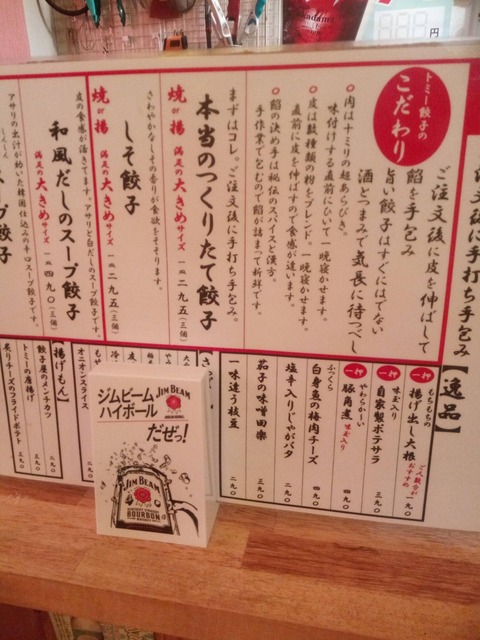 ご注文後に手打ち手包み
トミー餃子の
こだわり
ご注文後に皮を伸ばして
餡を手包み
旨い餃子はすぐにはでない
酒とつまみで気長に待つべし
肉はナミリの超あらびき。
味付けする直前にひいて一晩寝かせます。
皮は数種類の粉をブレンド。一晩寝かせます。
直前に皮を伸ばすので食感が違います。
餡の決め手は秘伝のスパイスと漢方。
手作業で包むので餡が詰まって新鮮です。
まずはコレ。ご注文後に手打ち手包み。
本当のつくりたて餃子
焼or揚 満足の大きめサイズ 一皿二九五(三個)
さわやかなしその香りが食欲をそそります。
しそ餃子
焼or揚 満足の大きめサイズ 一皿二九五(三個)
皮の食感が活きてます。アサリと白だしのスープ餃子です。
和風だしのスープ餃子
満足の大きめサイズ 一皿四九〇(三個)
アサリの出汁が効いた韓国仕込みのキロスープ餃子です。
スープ餃子
【逸品】
一押
もちもちの
揚げ出し大根
ご人数分がおすすめ
一九〇
一押
味玉入り
自家製ポテサラ
三九〇
一押
やわらかーい
豚角煮
味玉入り
四九〇
ふっくら
白身魚の梅肉チーズ
四九〇
塩辛入りじゃがバタ
二九〇
茄子の味噌田楽
三九〇
一味違う枝豆
二九〇
オニオンスライス
【揚げもん】
餃子屋のメンチカツ
トミーの唐揚げ
炙りチーズのフライドポテト
三九〇
ジムビーム
ハイボール
だぜっ!
JIM BEAM
JIM BEAM
BOURBON